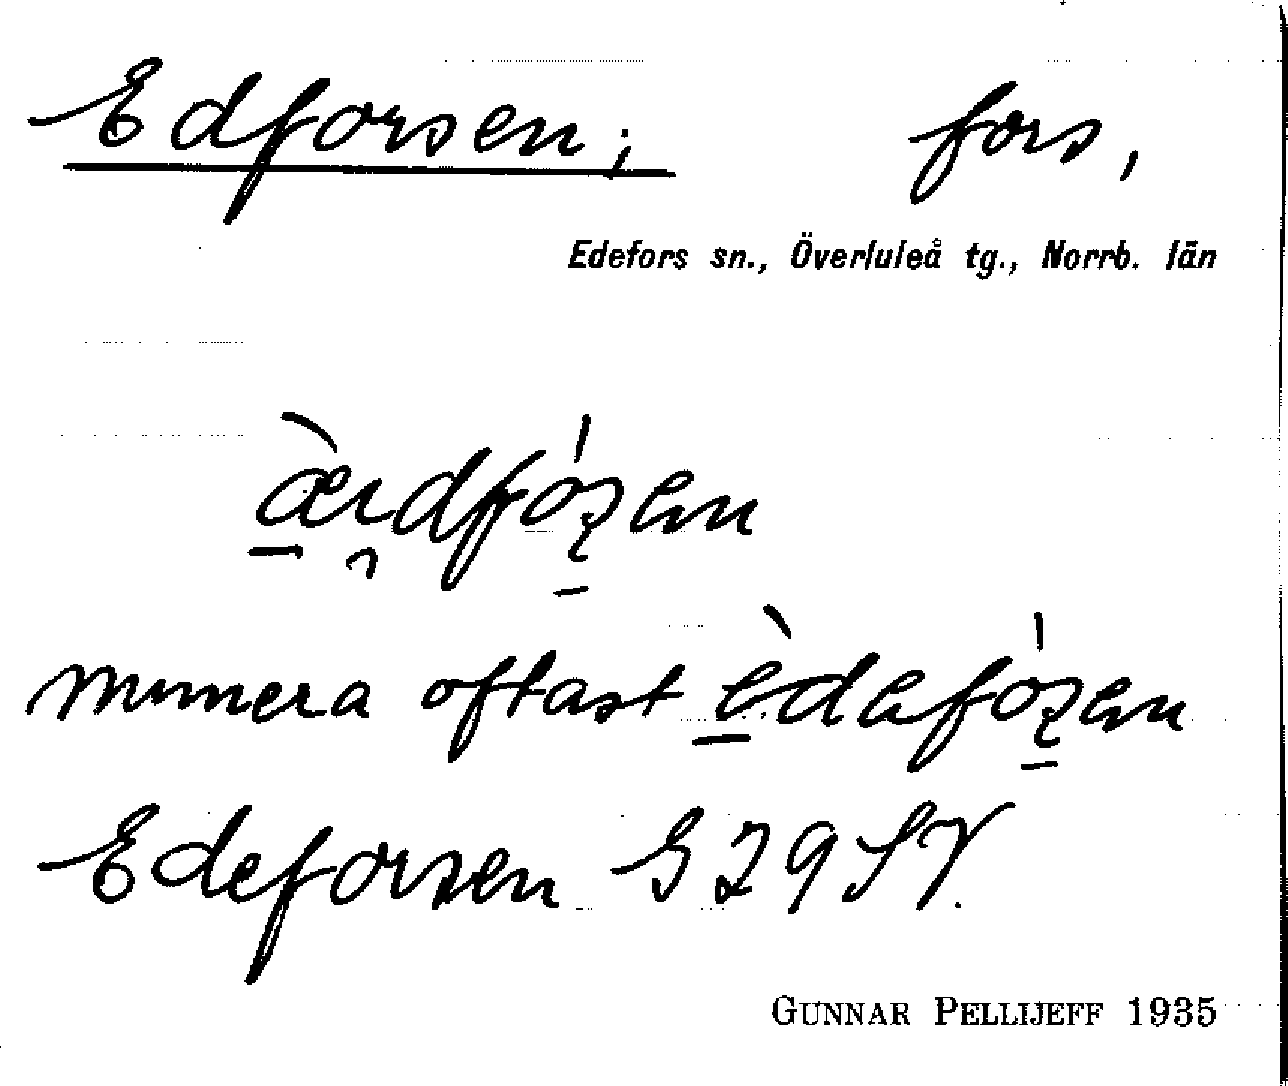 Edforsen; fors,
Edefors sn., Överluleå tg., Norrb. län
numera oftast
Edeforsen G 29 SV.
GUNNAR PELLIJEFF 1935